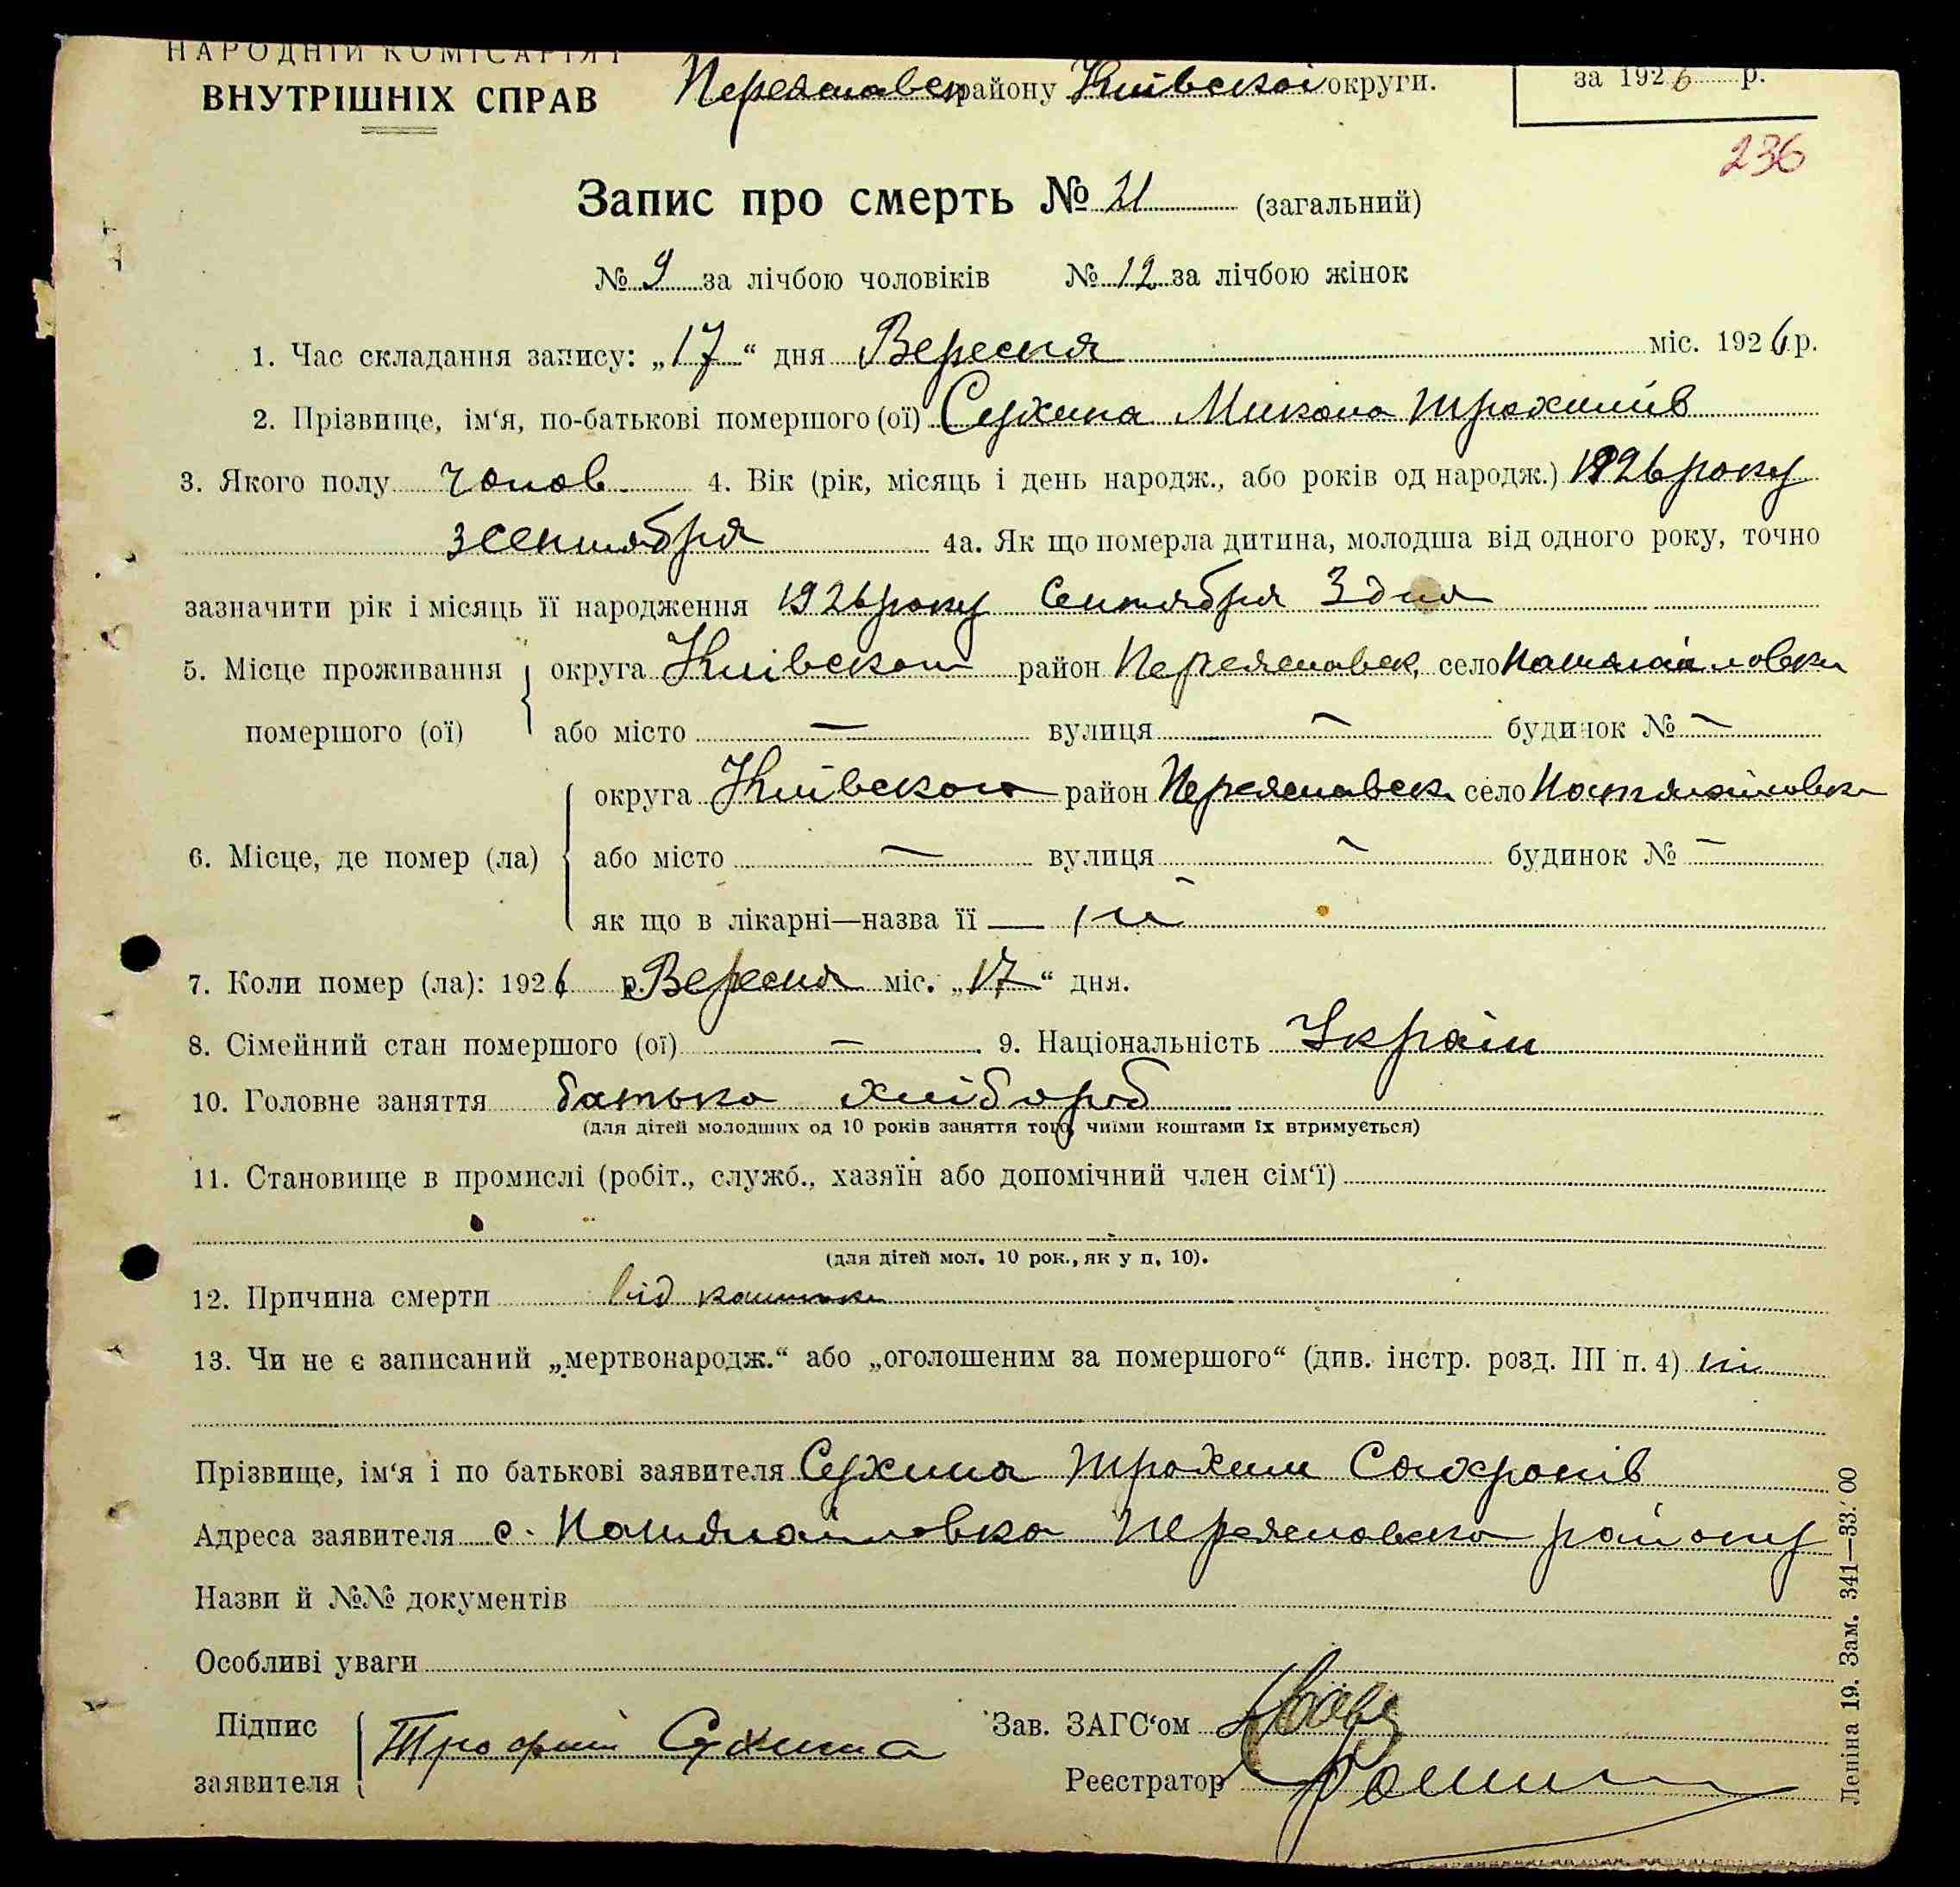 НАРОДНІЙ КОМІСАРІЯТ
ВНУТРІШНІХ СПРАВ
Переяславск району Київскої округи.
за 1926 р.
236
Запис про смерть № 21 (загальний)
№ 9 за лічбою чоловіків № 12 за лічбою жінок
1. Час складання запису: „17“ дня Вересня міс. 1926 р.
2. Прізвище, ім‘я, по-батькові помершого (ої) Сухина Микола Трохимів
3. Якого полу чолов. 4. Вік (рік, місяць і день народж., або років од народж.) 1926 року
3 сентября 4а. Як що померла дитина, молодша від одного року, точно
зазначити рік і місяць її народження 1926 року Сентября 3 дня
5. Місце проживання округа Київскои район Переяславск. село
помершого (ої) або місто — вулиця — будинок № —
округа Київскои район Переяславск. село
6. Місце, де помер (ла) або місто — вулиця — будинок № —
як що в лікарні—назва її —
7. Коли помер (ла): 1926 р. Вересня міс. „17“ дня.
8. Сімейний стан помершого (ої) — 9. Національність Україн
10. Головне заняття батько хлібороб
(для дітей молодших од 10 років заняття того, чиїми коштами їх втримується)
11. Становище в промислі (робіт., служб., хазяїн або допомічний член сім‘ї)
(для дітей мол. 10 рок., як у п. 10).
12. Причина смерти від
13. Чи не є записаний „мертвонародж.“ або „оголошеним за помершого“ (див. інстр. розд. III п. 4) ні
Прізвище, ім‘я і по батькові заявителя Сухина Трохим Сохронів
Адреса заявителя с. Переяславско району
Назви й №№ документів
Особливі уваги
Підпис заявителя Трофим Сухина
Зав. ЗАГС‘ом
Реєстратор
Леніна 19. Зам. 341—33.'00